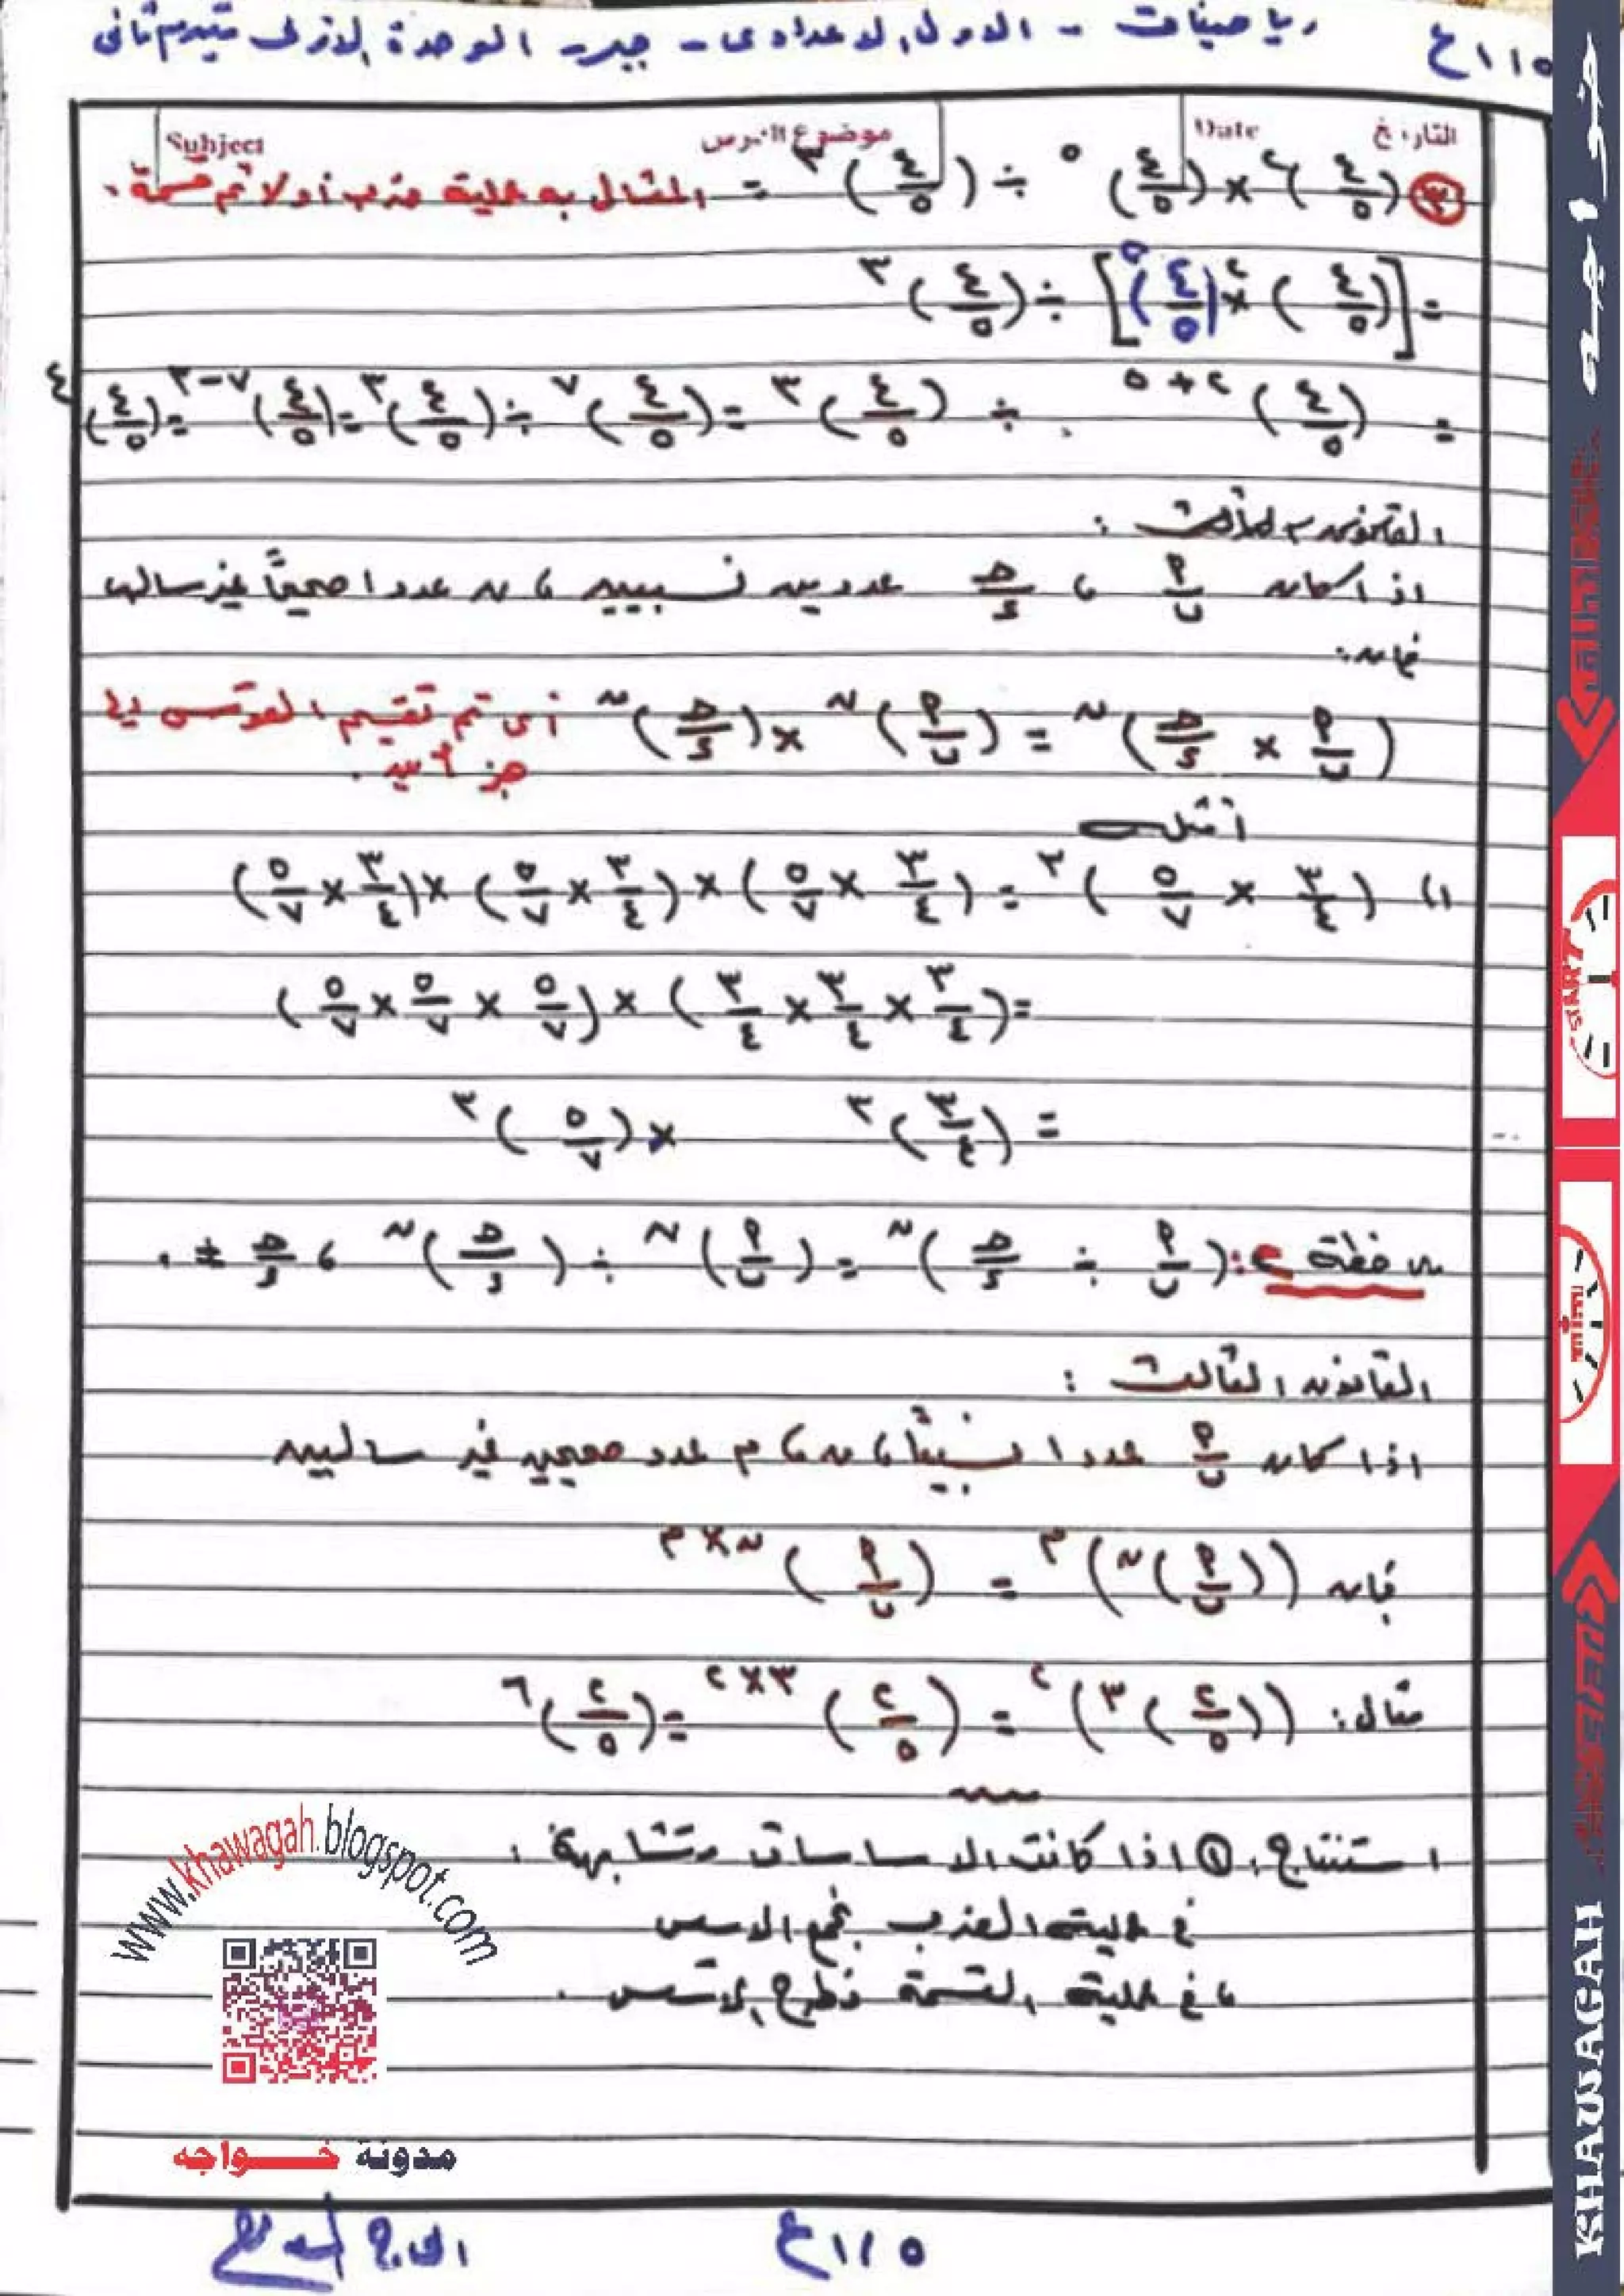 رياضيات - الاول الاعدادى - جبر - الوحدة الاولى تيرم ثانى ١١٥ ع
Subject موضوع الدرس Date التاريخ
٣ (٤/٥)^٢ × (٤/٥)^٥ ÷ (٤/٥)^٣ = المثال به عملية ضرب أولا ثم قسمة .
= [(٤/٥)^٢ × (٤/٥)^٥] ÷ (٤/٥)^٣
= (٤/٥)^٢+٥ ÷ (٤/٥)^٣ = (٤/٥)^٧ ÷ (٤/٥)^٣ = (٤/٥)^٧-٣ = (٤/٥)^٤
القانون الثالث :
اذا كان م/ب ، ح/د عددين نسبيين ، ن عددا صحيحاً غير سالب
فان :
(م/ب × ح/د)^ن = (م/ب)^ن × (ح/د)^ن أى تم تقسيم القوس الى
جزئين .
أمثلة
١) (٣/٤ × ٥/٧)^٣ = (٣/٤ × ٥/٧) × (٣/٤ × ٥/٧) × (٣/٤ × ٥/٧)
= (٣/٤ × ٣/٤ × ٣/٤) × (٥/٧ × ٥/٧ × ٥/٧)
= (٣/٤)^٣ × (٥/٧)^٣
ملاحظة ٢ : (م/ب ÷ ح/د)^ن = (م/ب)^ن ÷ (ح/د)^ن ، ح/د ≠ ٠
القانون الثالث :
اذا كان م/ب عددا نسبيّاً ، ن ، م عدد صحيحين غير سالبين
فان ((م/ب)^ن)^م = (م/ب)^ن×م
مثال : ((٢/٥)^٣)^٢ = (٢/٥)^٣×٢ = (٢/٥)^٦
استنتاج : ١ اذا كانت الاساسات متشابهة :
فى عملية الضرب نجمع الاسس
، فى عملية القسمة نطرح الاسس .
www.khawagah.blogspot.com
مدونة خـــواجه
١١٥ ع
خواجه
KHAWAGAH